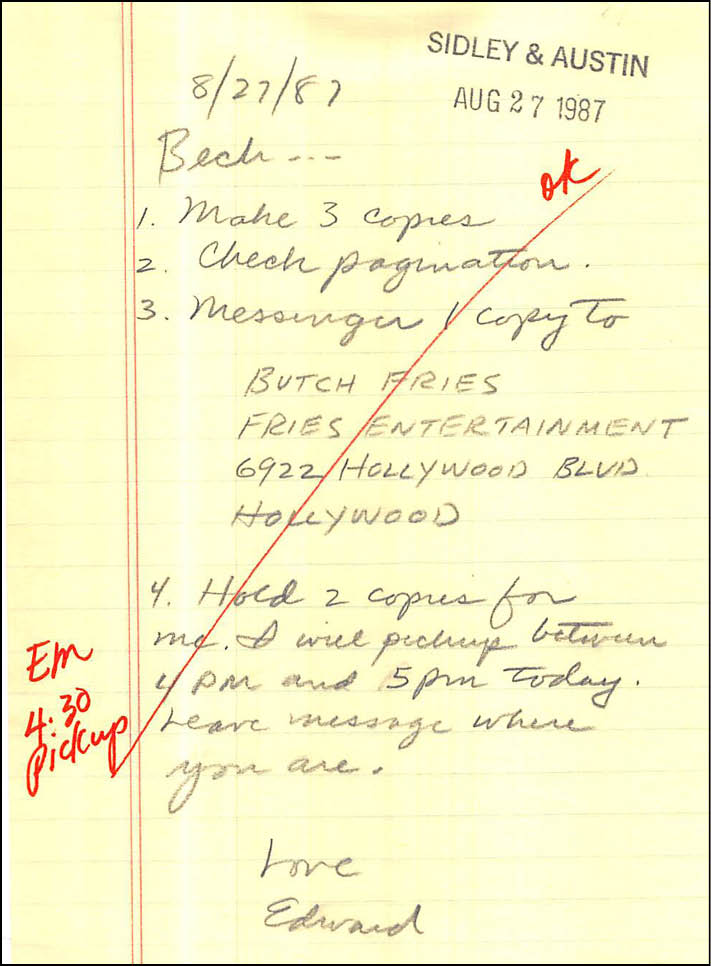 SIDLEY & AUSTIN
AUG 27 1987
8/27/87
Bech ---
ok
1. Make 3 copies
2. Check pagination.
3. Messenger 1 copy to
BUTCH FRIES
FRIES ENTERTAINMENT
6922 HOLLYWOOD BLVD
HOLLYWOOD
4. Hold 2 copies for
me. I will pickup between
4 pm and 5 pm today.
Leave message where
you are.
EM
4:30
pickup
Love
Edward